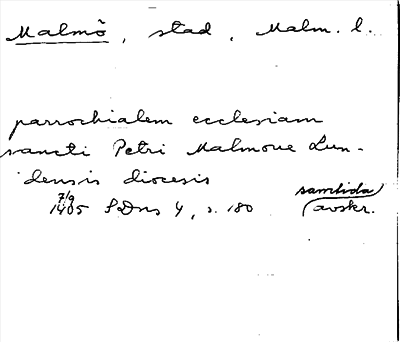 Malmö, stad, Malm. l.
parrochialem ecclesiam
sancti Petri Malmoue Lun-
densis diocesis
7/9 samtida
1405 SDns 4, s. 180 avskr.